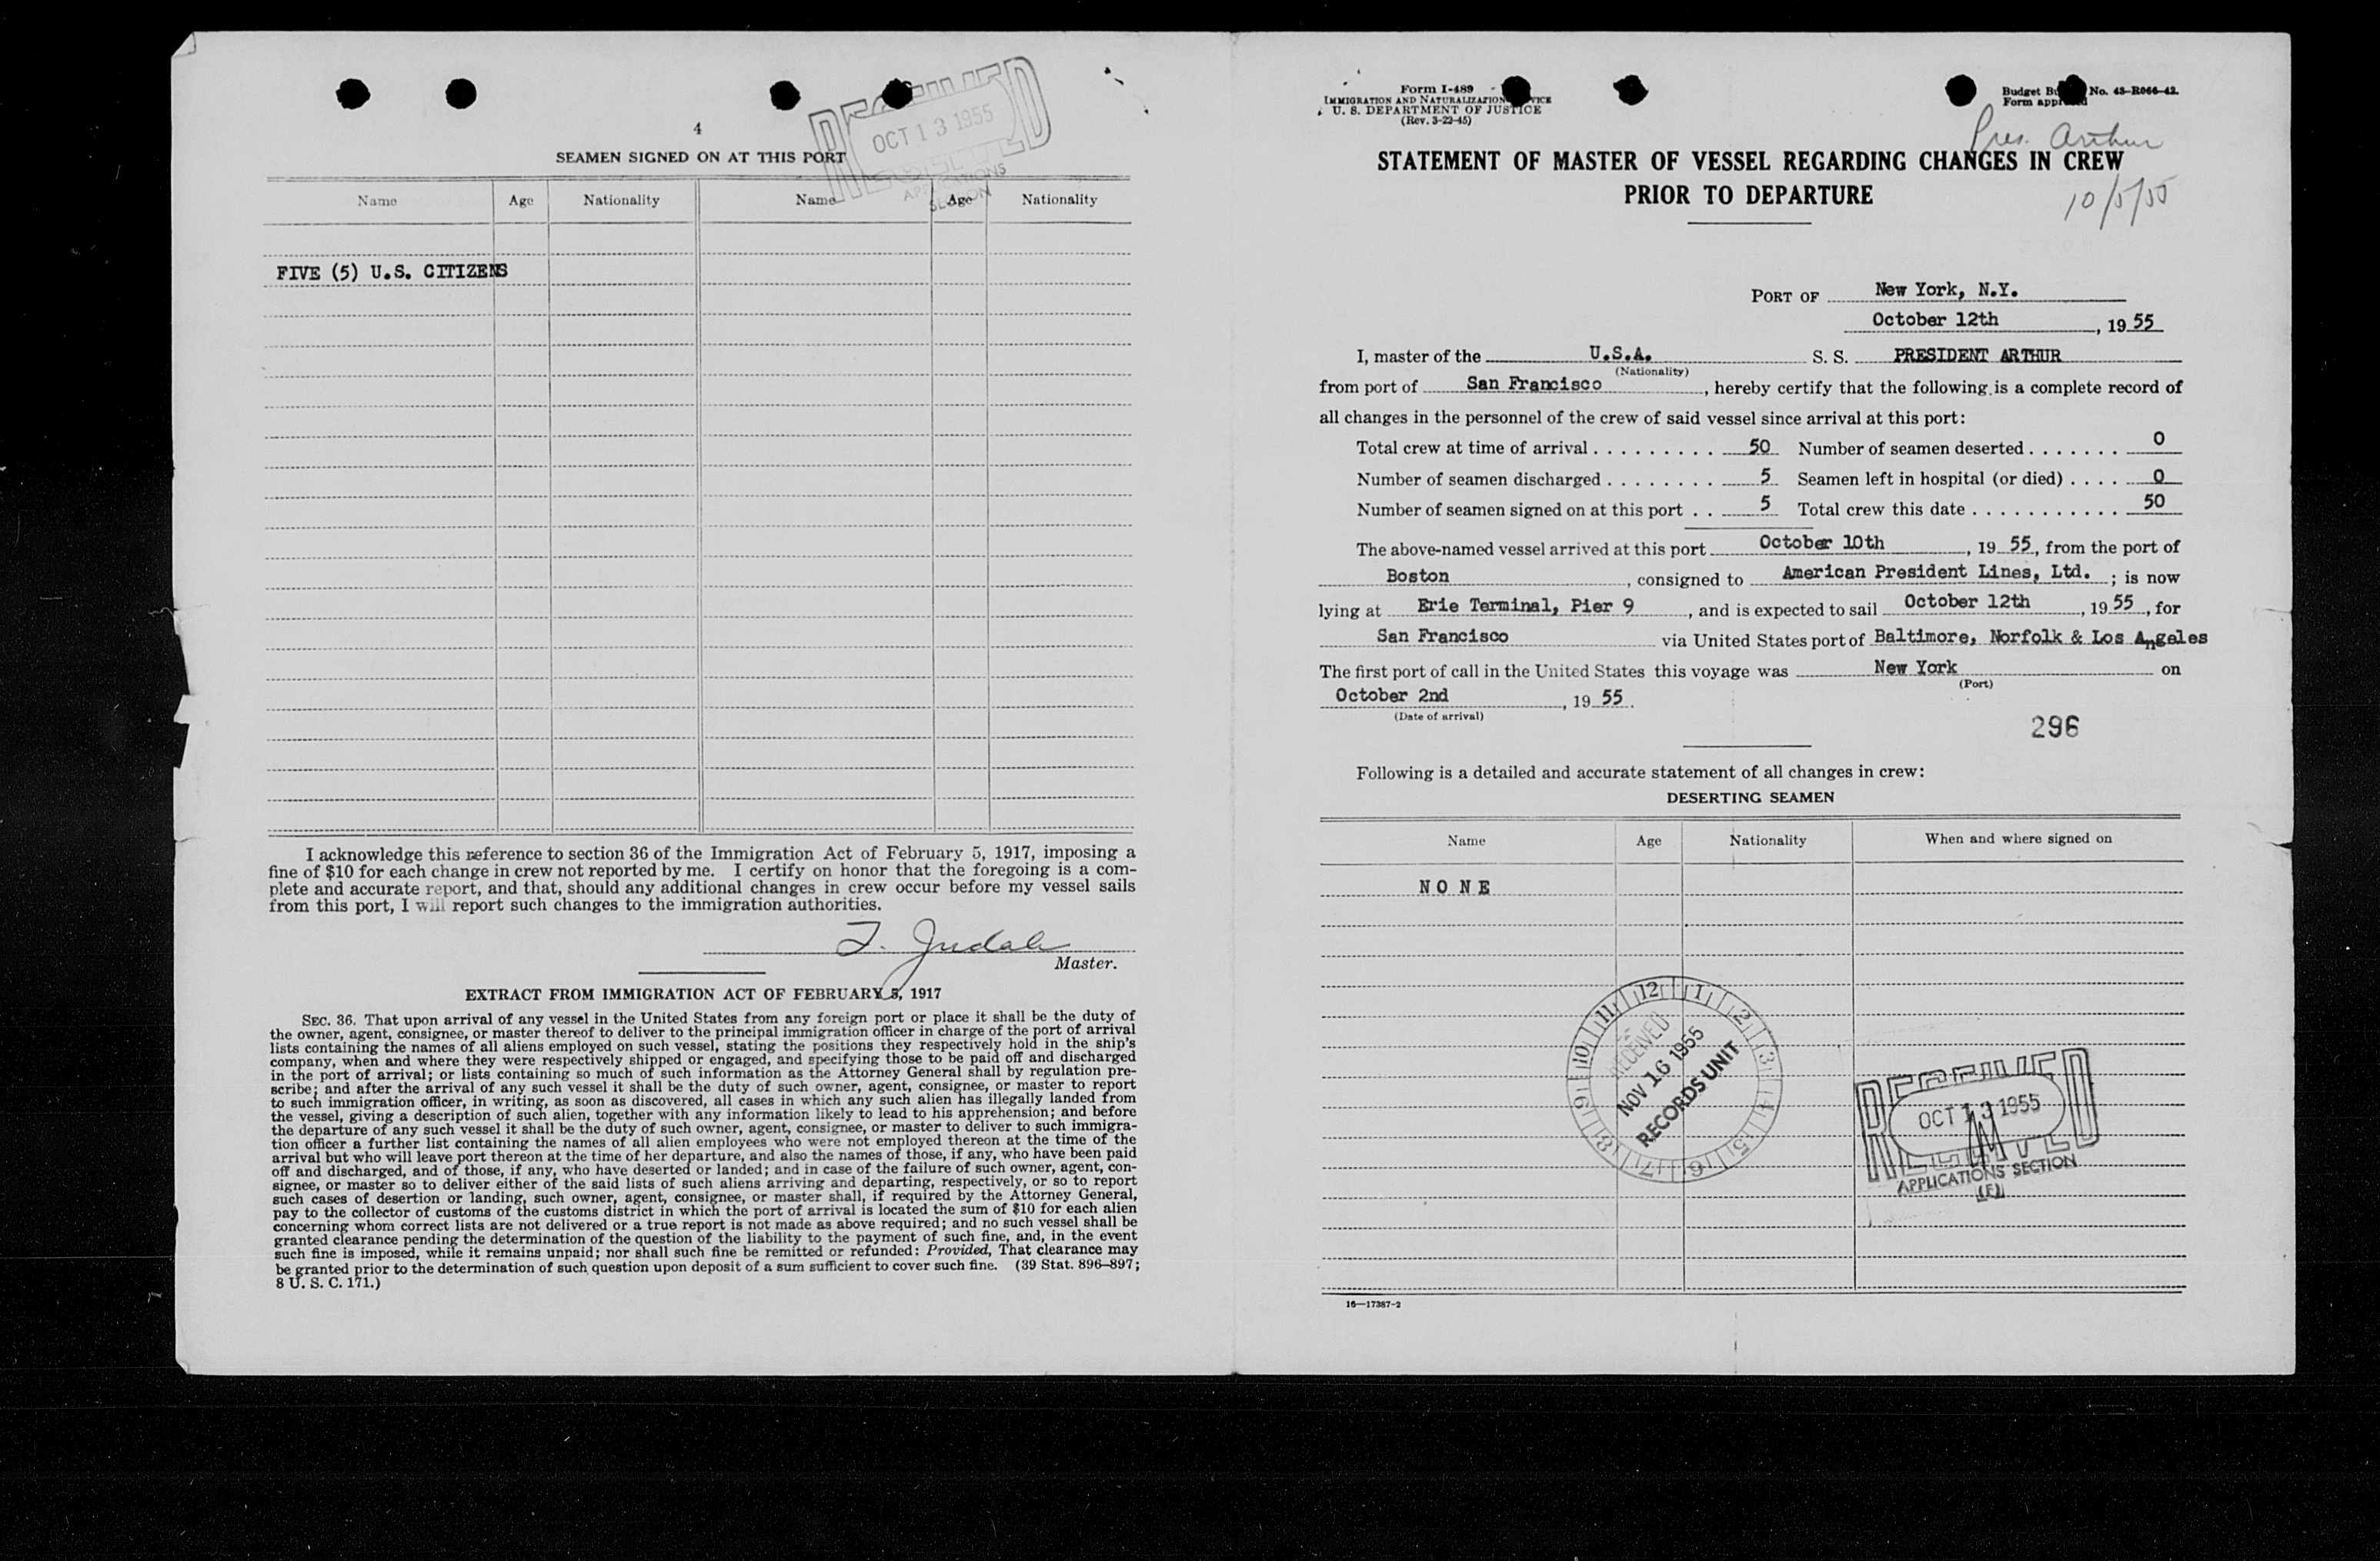 4
RECEIVED
OCT 13 1955
APPLICATIONS
SECTION
SEAMEN SIGNED ON AT THIS PORT
Name Age Nationality Name Age Nationality
FIVE (5) U.S. CITIZENS
I acknowledge this reference to section 36 of the Immigration Act of February 5, 1917, imposing a
fine of $10 for each change in crew not reported by me. I certify on honor that the foregoing is a com-
plete and accurate report, and that, should any additional changes in crew occur before my vessel sails
from this port, I will report such changes to the immigration authorities.
Judah
Master.
EXTRACT FROM IMMIGRATION ACT OF FEBRUARY 5, 1917
SEC. 36. That upon arrival of any vessel in the United States from any foreign port or place it shall be the duty of
the owner, agent, consignee, or master thereof to deliver to the principal immigration officer in charge of the port of arrival
lists containing the names of all aliens employed on such vessel, stating the positions they respectively hold in the ship's
company, when and where they were respectively shipped or engaged, and specifying those to be paid off and discharged
in the port of arrival; or lists containing so much of such information as the Attorney General shall by regulation pre-
scribe; and after the arrival of any such vessel it shall be the duty of such owner, agent, consignee, or master to report
to such immigration officer, in writing, as soon as discovered, all cases in which any such alien has illegally landed from
the vessel, giving a description of such alien, together with any information likely to lead to his apprehension; and before
the departure of any such vessel it shall be the duty of such owner, agent, consignee, or master to deliver to such immigra-
tion officer a further list containing the names of all alien employees who were not employed thereon at the time of the
arrival but who will leave port thereon at the time of her departure, and also the names of those, if any, who have been paid
off and discharged, and of those, if any, who have deserted or landed; and in case of the failure of such owner, agent, con-
signee, or master so to deliver either of the said lists of such aliens arriving and departing, respectively, or so to report
such cases of desertion or landing, such owner, agent, consignee, or master shall, if required by the Attorney General,
pay to the collector of customs of the customs district in which the port of arrival is located the sum of $10 for each alien
concerning whom correct lists are not delivered or a true report is not made as above required; and no such vessel shall be
granted clearance pending the determination of the question of the liability to the payment of such fine, and, in the event
such fine is imposed, while it remains unpaid; nor shall such fine be remitted or refunded: Provided, That clearance may
be granted prior to the determination of such question upon deposit of a sum sufficient to cover such fine. (39 Stat. 896–897;
8 U. S. C. 171.)
Form I-489
IMMIGRATION AND NATURALIZATION
U. S. DEPARTMENT OF JUSTICE
(Rev. 3-22-45)
Budget No. 43-R066-42.
Form approved
Pres. Arthur
STATEMENT OF MASTER OF VESSEL REGARDING CHANGES IN CREW
PRIOR TO DEPARTURE
10/5/55
PORT OF New York, N.Y.
October 12th, 19 55
I, master of the U.S.A. S. S. PRESIDENT ARTHUR
(Nationality)
from port of San Francisco, hereby certify that the following is a complete record of
all changes in the personnel of the crew of said vessel since arrival at this port:
Total crew at time of arrival 50 Number of seamen deserted 0
Number of seamen discharged 5 Seamen left in hospital (or died) 0
Number of seamen signed on at this port 5 Total crew this date 50
The above-named vessel arrived at this port October 10th, 19 55, from the port of
Boston, consigned to American President Lines, Ltd.; is now
lying at Erie Terminal, Pier 9, and is expected to sail October 12th, 19 55, for
San Francisco via United States port of Baltimore, Norfolk & Los Angeles
The first port of call in the United States this voyage was New York on
(Port)
October 2nd, 19 55.
(Date of arrival)
296
Following is a detailed and accurate statement of all changes in crew:
DESERTING SEAMEN
Name Age Nationality When and where signed on
NONE
12 1 2 3 4 5 6 7 8 9 10 11
RECEIVED
NOV 16 1955
RECORDS UNIT
RECEIVED
OCT 13 1955
APPLICATIONS SECTION
16—17387-2